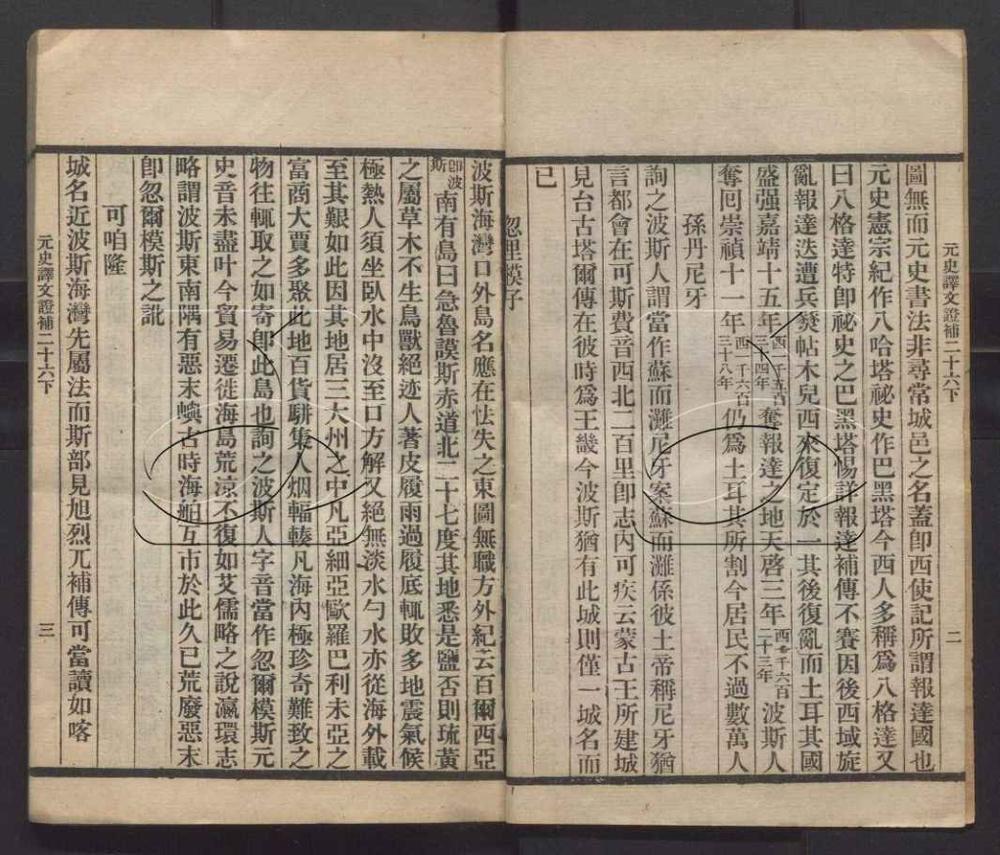 元史譯文證補二十六下
二
圖無而元史書法非尋常城邑之名蓋卽西使記所謂報達國也
元史憲宗紀作八哈塔祕史作巴黑塔今西人多稱爲八格達又
曰八格達特卽祕史之巴黑塔惕詳報達補傳不賽因後西域旋
亂報達迭遭兵燹帖木兒西來復定於一其後復亂而土耳其國
盛强嘉靖十五年西一千五百三十四年奪報達之地天啓三年西一千六百二十三年波斯人
奪回崇禎十一年西一千六百三十八年仍爲土耳其所割今居民不過數萬人
孫丹尼牙
詢之波斯人謂當作蘇而灘尼牙案蘇而灘係彼土帝稱尼牙猶
言都會在可斯費音西北二百里卽志內可疾云蒙古王所建城
見台古塔爾傳在彼時爲王畿今波斯猶有此城則僅一城名而
已
忽里模子
波斯海灣口外島名應在怯失之東圖無職方外紀云百爾西亞
卽波斯南有島曰急魯謨斯赤道北二十七度其地悉是鹽否則琉黃
之屬草木不生鳥獸絕迹人著皮履雨過履底輒敗多地震氣候
極熱人須坐臥水中沒至口方解又絕無淡水勺水亦從海外載
至其艱如此因其地居三大州之中凡亞細亞歐羅巴利未亞之
富商大賈多聚此地百貨駢集人烟輻輳凡海內極珍奇難致之
物往輒取之如寄卽此島也詢之波斯人字音當作忽爾模斯元
史音未盡叶今貿易遷徙海島荒涼不復如艾儒略之說瀛環志
略謂波斯東南隅有惡末嶼古時海舶互市於此久已荒廢惡末
卽忽爾模斯之訛
可咱隆
城名近波斯海灣先屬法而斯部見旭烈兀補傳可當讀如喀
元史譯文證補二十六下
三